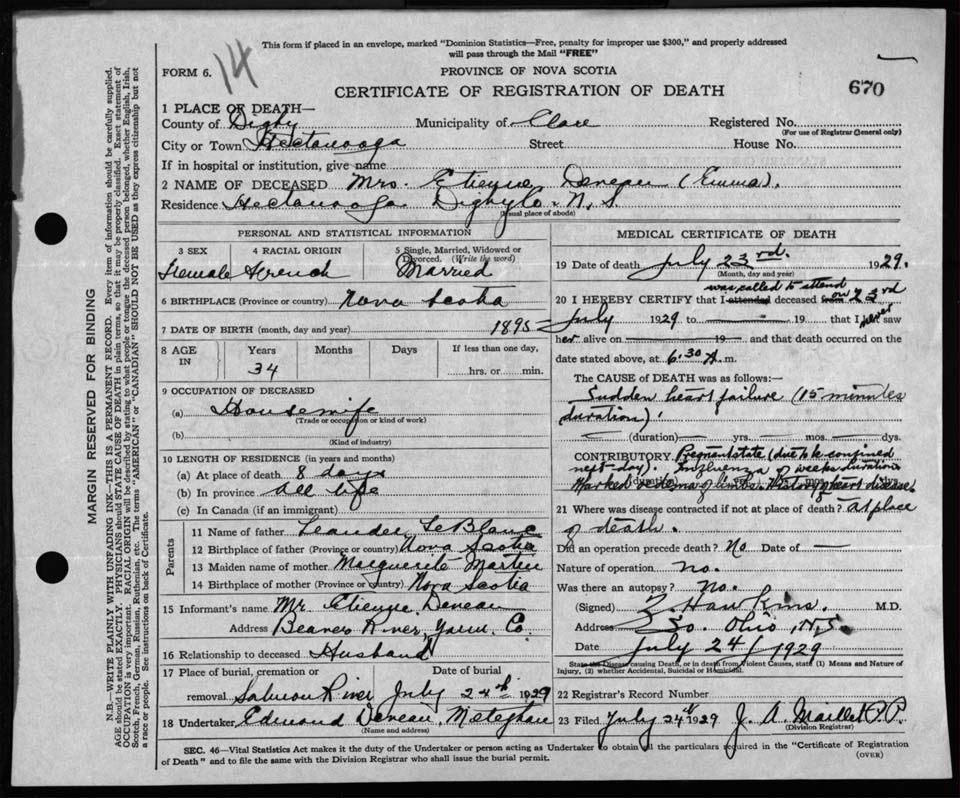 14
This form if placed in an envelope, marked "Dominion Statistics—Free, penalty for improper use $300," and properly addressed
will pass through the Mail "FREE"
FORM 6.
PROVINCE OF NOVA SCOTIA
CERTIFICATE OF REGISTRATION OF DEATH
670
1 PLACE OF DEATH—
County of Digby Municipality of Clare Registered No.
(For use of Registrar General only)
City or Town Hectanooga Street House No.
If in hospital or institution, give name
2 NAME OF DECEASED Mrs. Etienne Deneau (Emma).
Residence Hectanooga Digby Co. N.S.
(Usual place of abode)
PERSONAL AND STATISTICAL INFORMATION
3 SEX 4 RACIAL ORIGIN 5 Single, Married, Widowed or
Divorced. (Write the word)
Female French Married
6 BIRTHPLACE (Province or country) Nova Scotia
7 DATE OF BIRTH (month, day and year) 1895
8 AGE IN Years Months Days If less than one day,
34 hrs. or min.
9 OCCUPATION OF DECEASED
(a) Housewife
(Trade or occupation or kind of work)
(b)
(Kind of industry)
10 LENGTH OF RESIDENCE (in years and months)
(a) At place of death 8 days
(b) In province all life
(c) In Canada (if an immigrant)
Parents
11 Name of father Leander LeBlanc
12 Birthplace of father (Province or country) Nova Scotia
13 Maiden name of mother Marguerite Martin
14 Birthplace of mother (Province or country) Nova Scotia
15 Informant's name Mr. Etienne Deneau
Address Beaver River, Yarm. Co.
16 Relationship to deceased Husband
17 Place of burial, cremation or Date of burial
removal Salmon River July 24th 1929
18 Undertaker Edmond Deneau, Meteghan
(Name and address)
MEDICAL CERTIFICATE OF DEATH
19 Date of death July 23rd. 1929.
(Month, day and year)
was called to attend
20 I HEREBY CERTIFY that I attended deceased from on 23rd
July 1929 to 19 that I never saw
her alive on 19 and that death occurred on the
date stated above, at 6.30 A.m.
The CAUSE of DEATH was as follows:—
Sudden heart failure (15 minutes
duration).
(duration) yrs. mos. dys.
CONTRIBUTORY. Pregnant state (due to be confined
next day). Influenza of weeks duration
Marked oedema of limbs. History of heart disease.
(duration) yrs. mos. dys.
21 Where was disease contracted if not at place of death? At place
of death.
Did an operation precede death? No Date of
Nature of operation no.
Was there an autopsy? No.
(Signed) E. Hawkins. M.D.
Address So. Ohio, N.S.
Date July 24/1929
State the Disease causing Death, or in death from Violent Causes, state (1) Means and Nature of
Injury, (2) whether Accidental, Suicidal or Homicidal.
22 Registrar's Record Number
23 Filed July 24th 1929 J. A. Maillet P.P.
(Division Registrar)
SEC. 46—Vital Statistics Act makes it the duty of the Undertaker or person acting as Undertaker to obtain all the particulars required in the "Certificate of Registration
of Death" and to file the same with the Division Registrar who shall issue the burial permit.
(OVER)
MARGIN RESERVED FOR BINDING
N.B.—WRITE PLAINLY WITH UNFADING INK—THIS IS A PERMANENT RECORD. Every item of information should be carefully supplied.
AGE should be stated EXACTLY. PHYSICIANS should STATE CAUSE OF DEATH in plain terms, so that it may be properly classified. Exact statement of
OCCUPATION is very important. RACIAL ORIGIN will be described by stating to what people or tongue the deceased person belonged, whether English, Irish,
Scotch, French, German, Russian, Ruthenian, etc. The terms "AMERICAN" or "CANADIAN" SHOULD NOT BE USED as they express citizenship but not
a race or people. See instructions on back of Certificate.